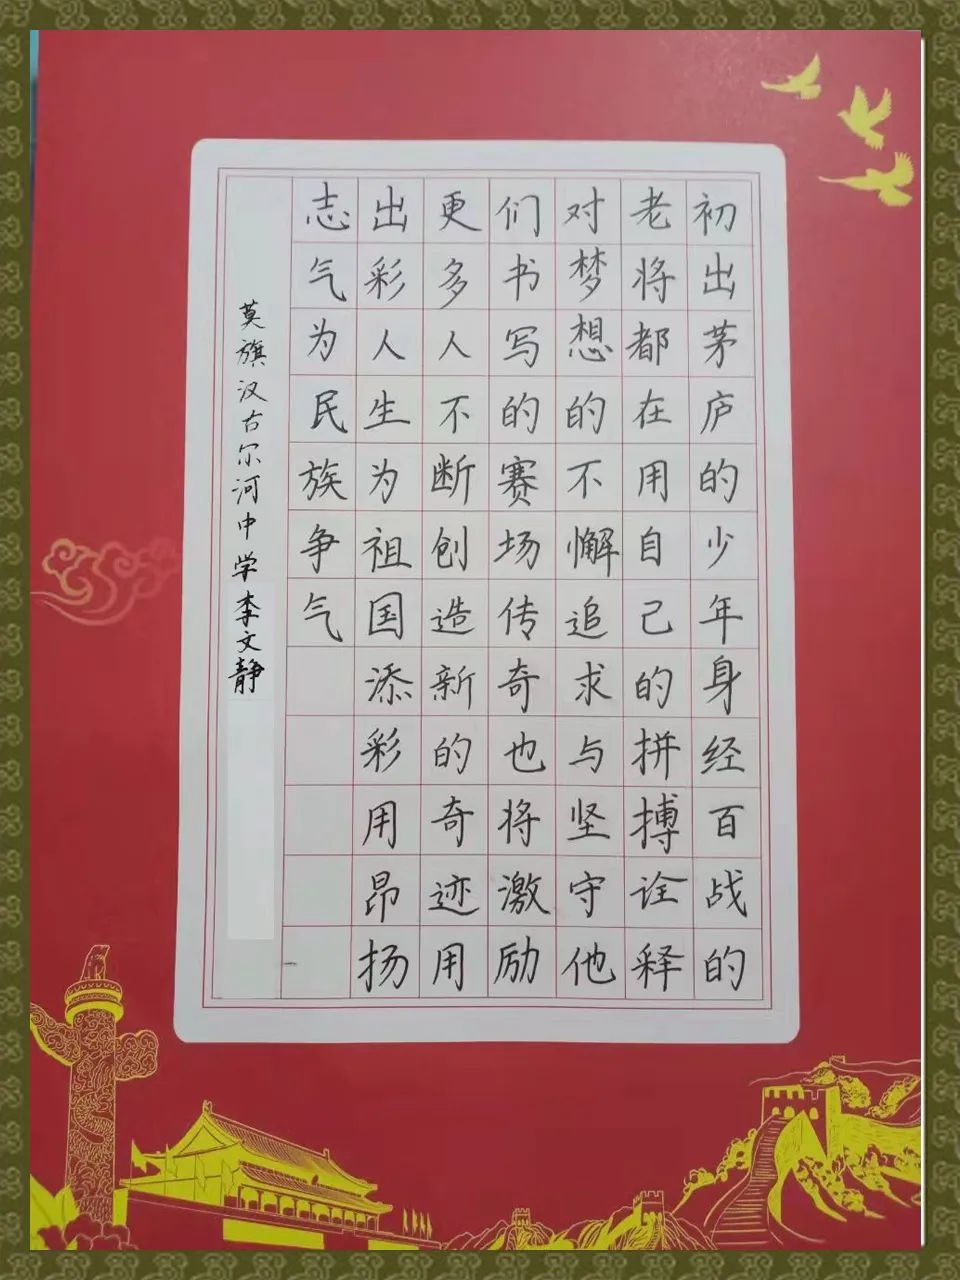 初出茅庐的少年身经百战的
老将都在用自己的拼搏诠释
对梦想的不懈追求与坚守他
们书写的赛场传奇也将激励
更多人不断创造新的奇迹用
出彩人生为祖国添彩用昂扬
志气为民族争气
莫旗汉古尔河中学李文静